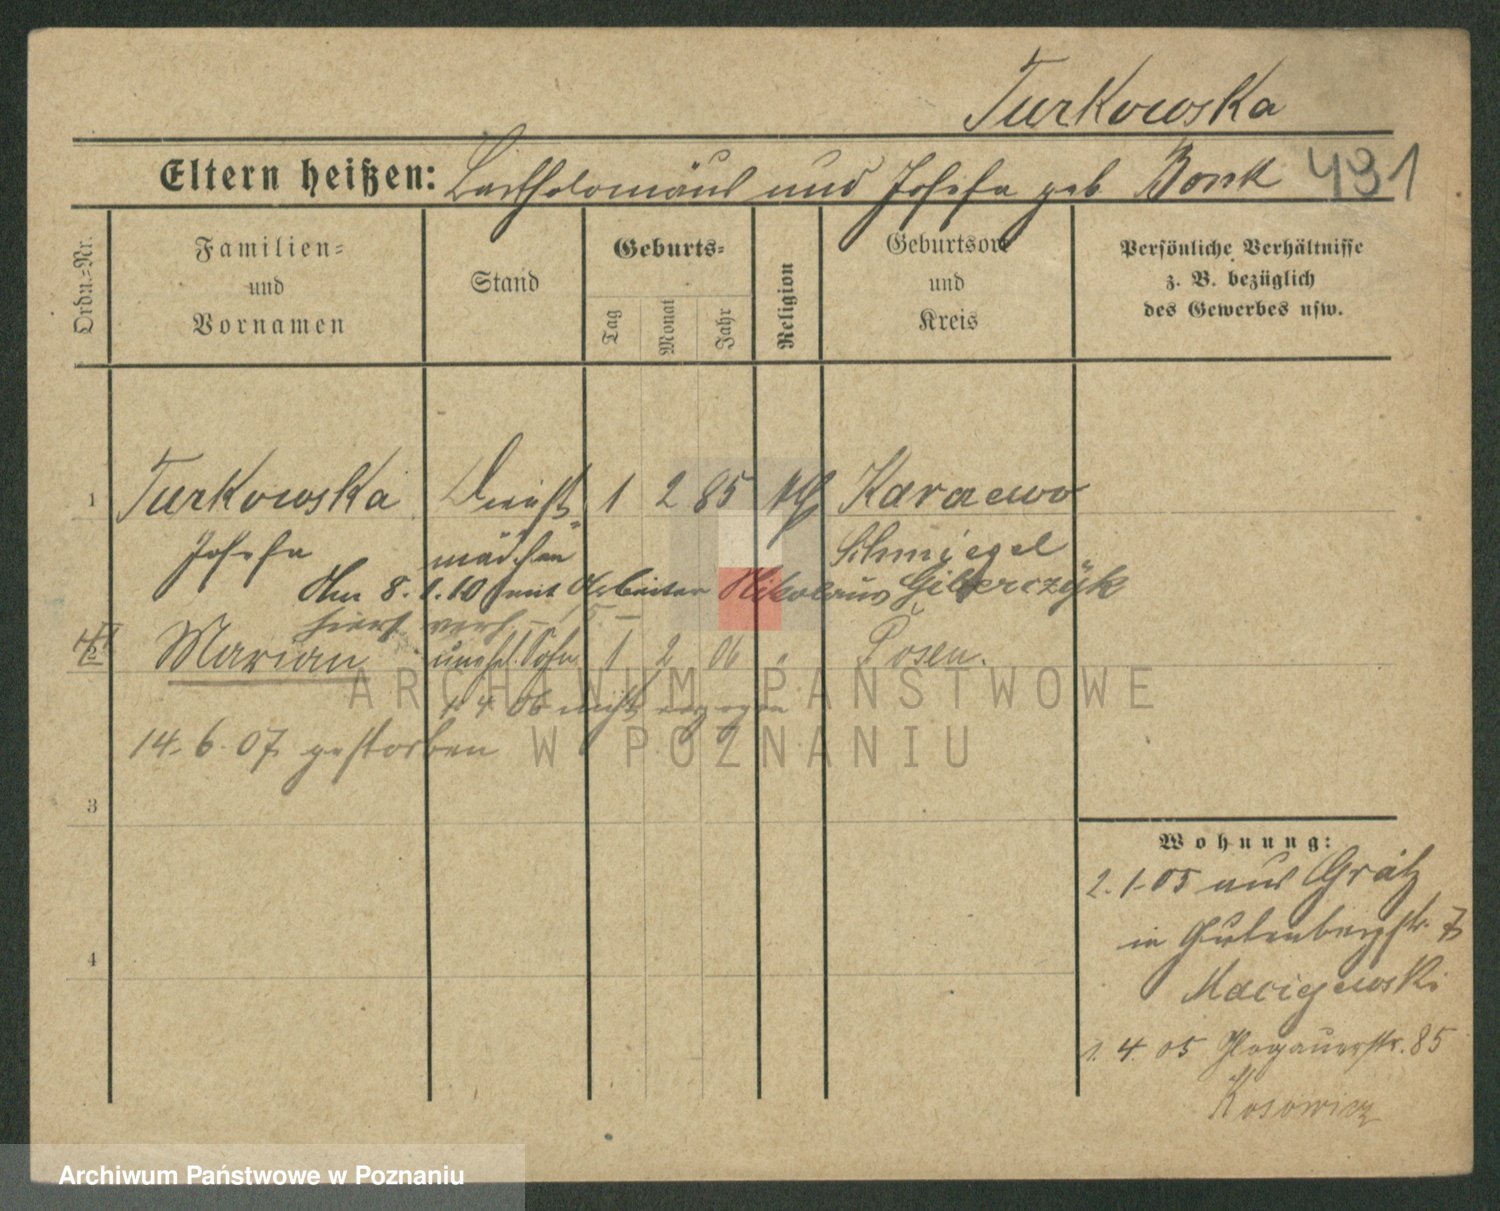 Turkowska
Eltern heißen: Bartholomäus und Josefa geb Bonk 431
Ordn.=Nr.
Familien=
und
Vornamen
Stand
Geburts=
Tag
Monat
Jahr
Religion
Geburtsort
und
Kreis
Persönliche Verhältnisse
z. B. bezüglich
des Gewerbes usw.
1 Turkowska Dienst= 1 2 85 klh Karaewo
Josefa mädchen Schmiegel
Am 8. 1. 10 mit Arbeiter Nikolaus Giberczyk
hier verh.
2 Marian unehel. Sohn 1 2 06 Posen.
1. 4 06 nicht
14. 6. 07 gestorben
3
4
Wohnung:
2. 1. 05 aus Grätz
in Gutenbergstr. 7
Maciejewski
1. 4. 05 Glogauerstr. 85
Kosowicz
ARCHIWUM PAŃSTWOWE
W POZNANIU
Archiwum Państwowe w Poznaniu